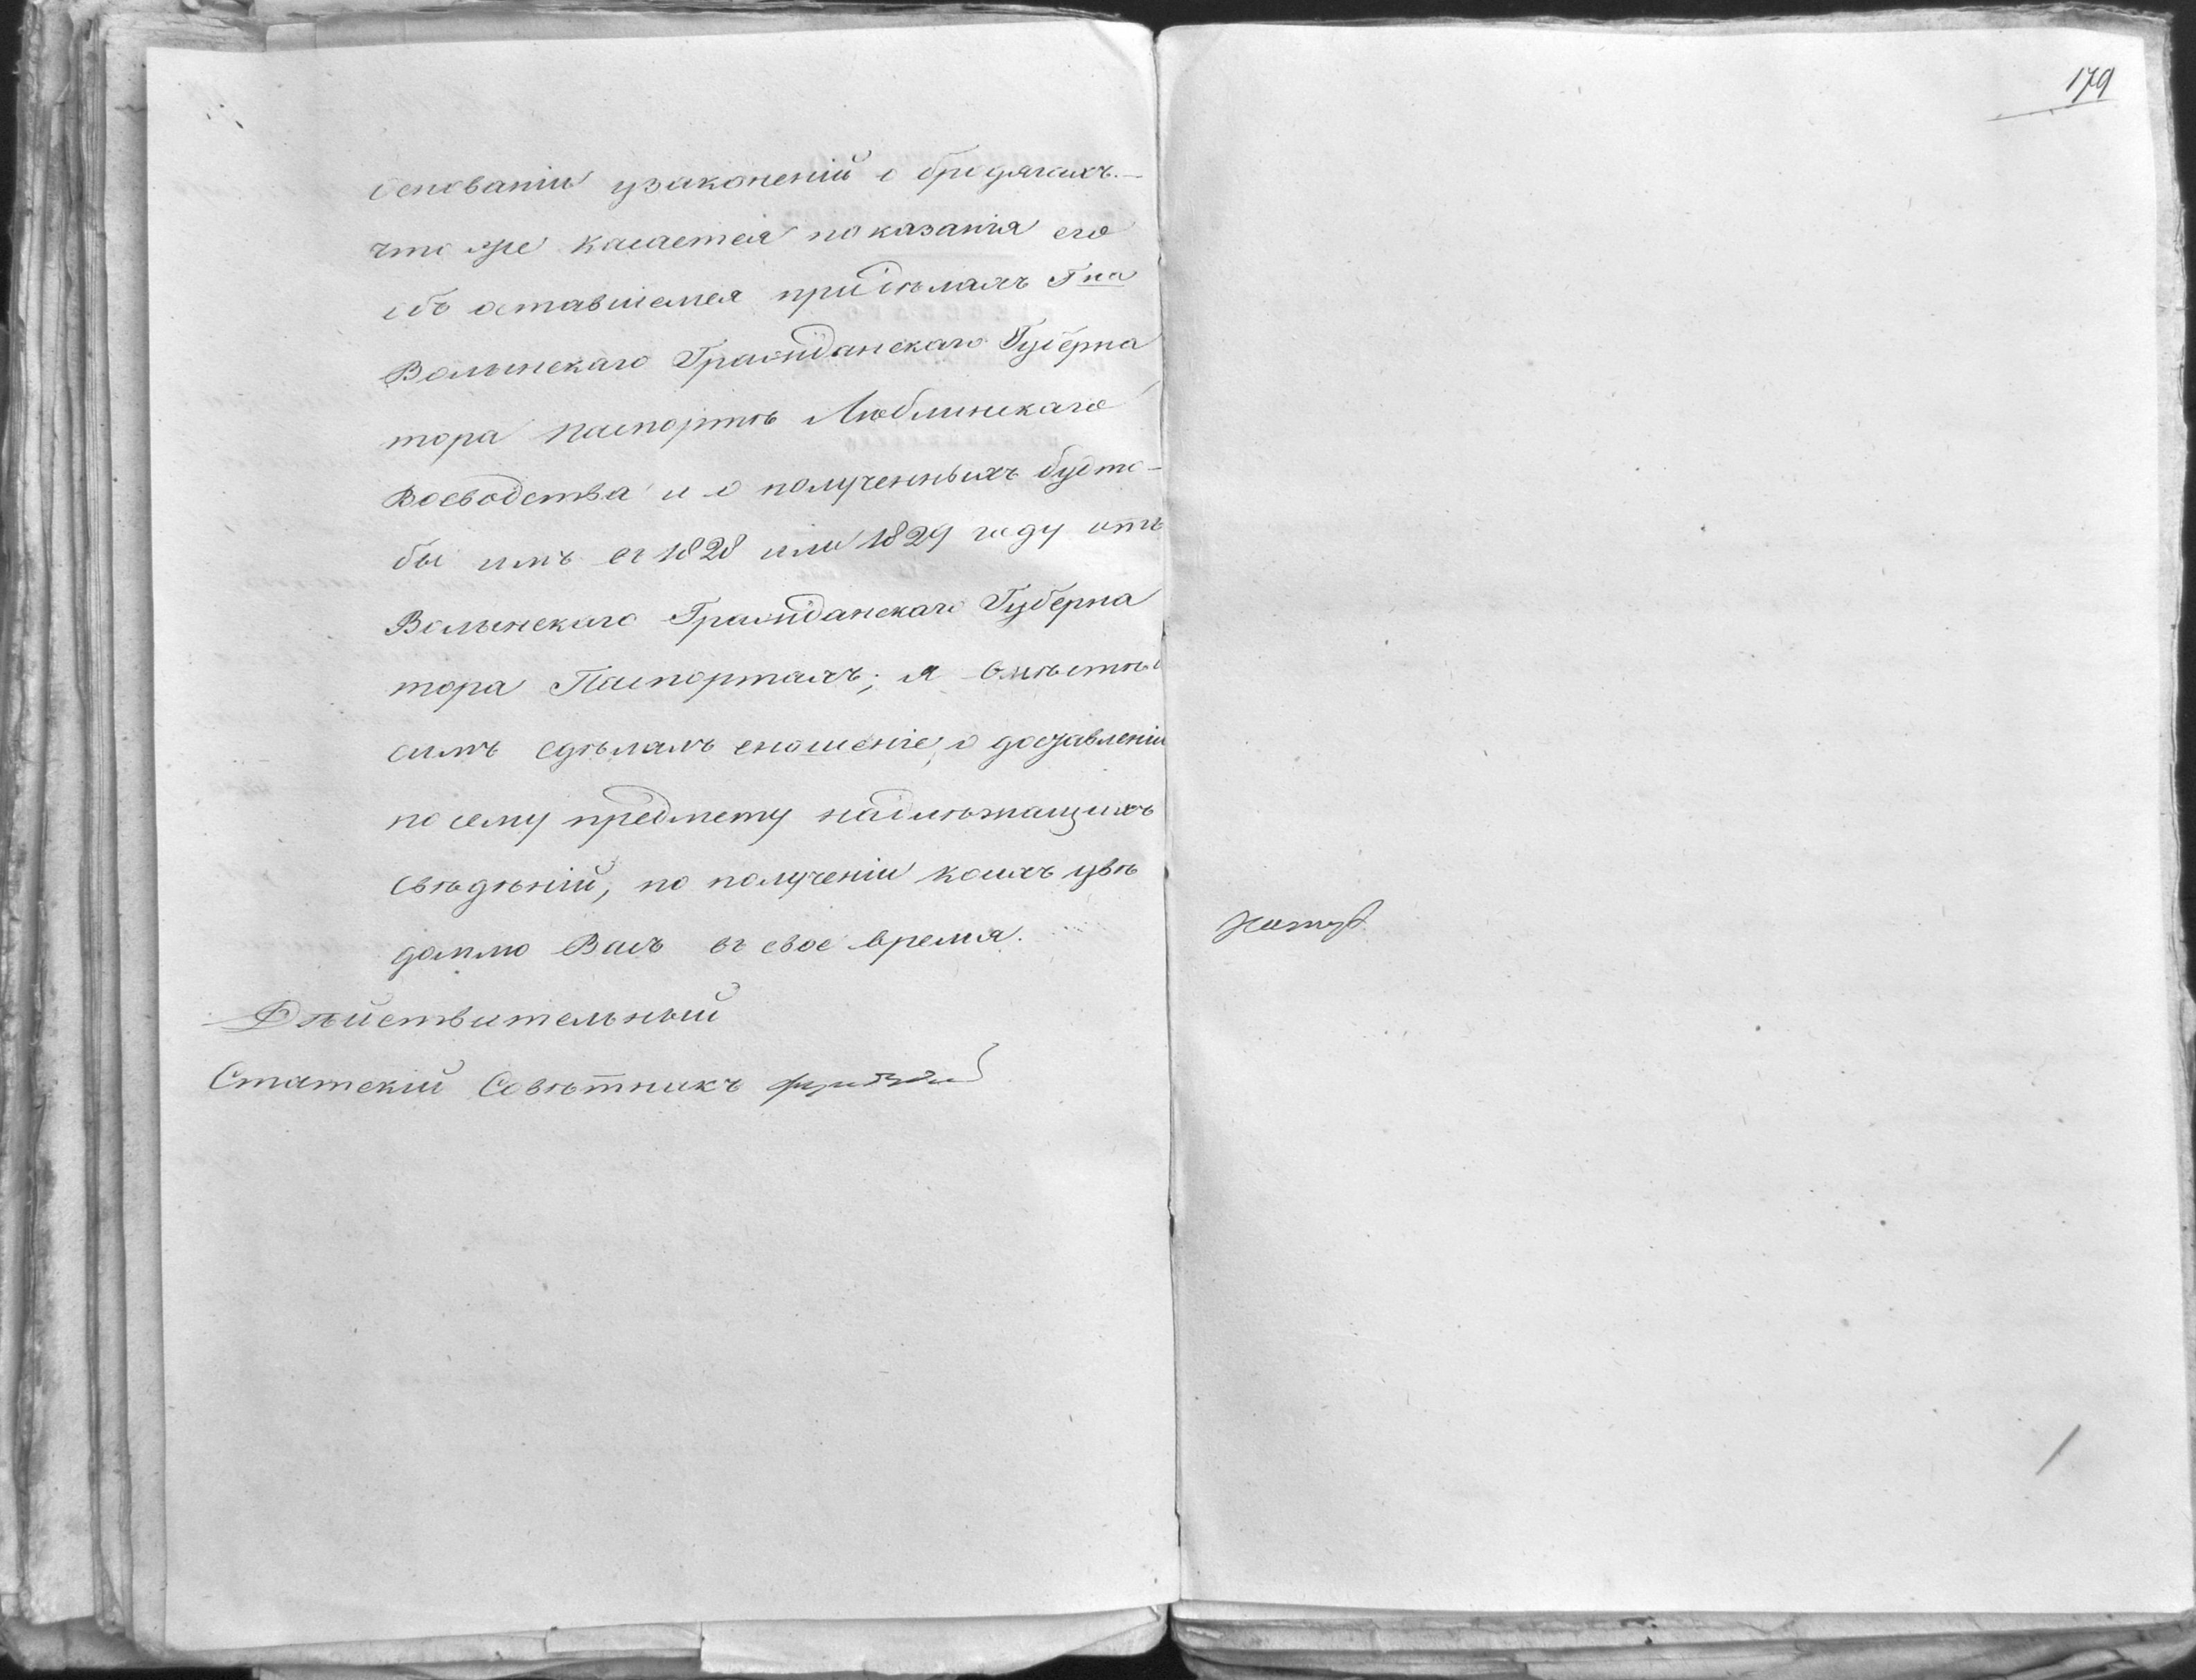 179
основаніи узаконеній о бродягахъ.—
что же касается показанія его
объ оставшемся при дѣлахъ Гна
Волынскаго Гражданскаго Губерна
тора паспортѣ Люблинскаго
Воеводства и о полученныхъ будто-
бы имъ въ 1828 или 1829 году отъ
Волынскаго Гражданскаго Губерна
тора Паспортахъ; я вмѣстѣ съ
симъ сдѣлалъ сношеніе, о доставленіи
по сему предмету надлѣжащихъ
свѣдѣній, по полученіи коихъ увѣ
домлю Васъ въ свое время.
Дѣйствительный
Статскій Совѣтникъ